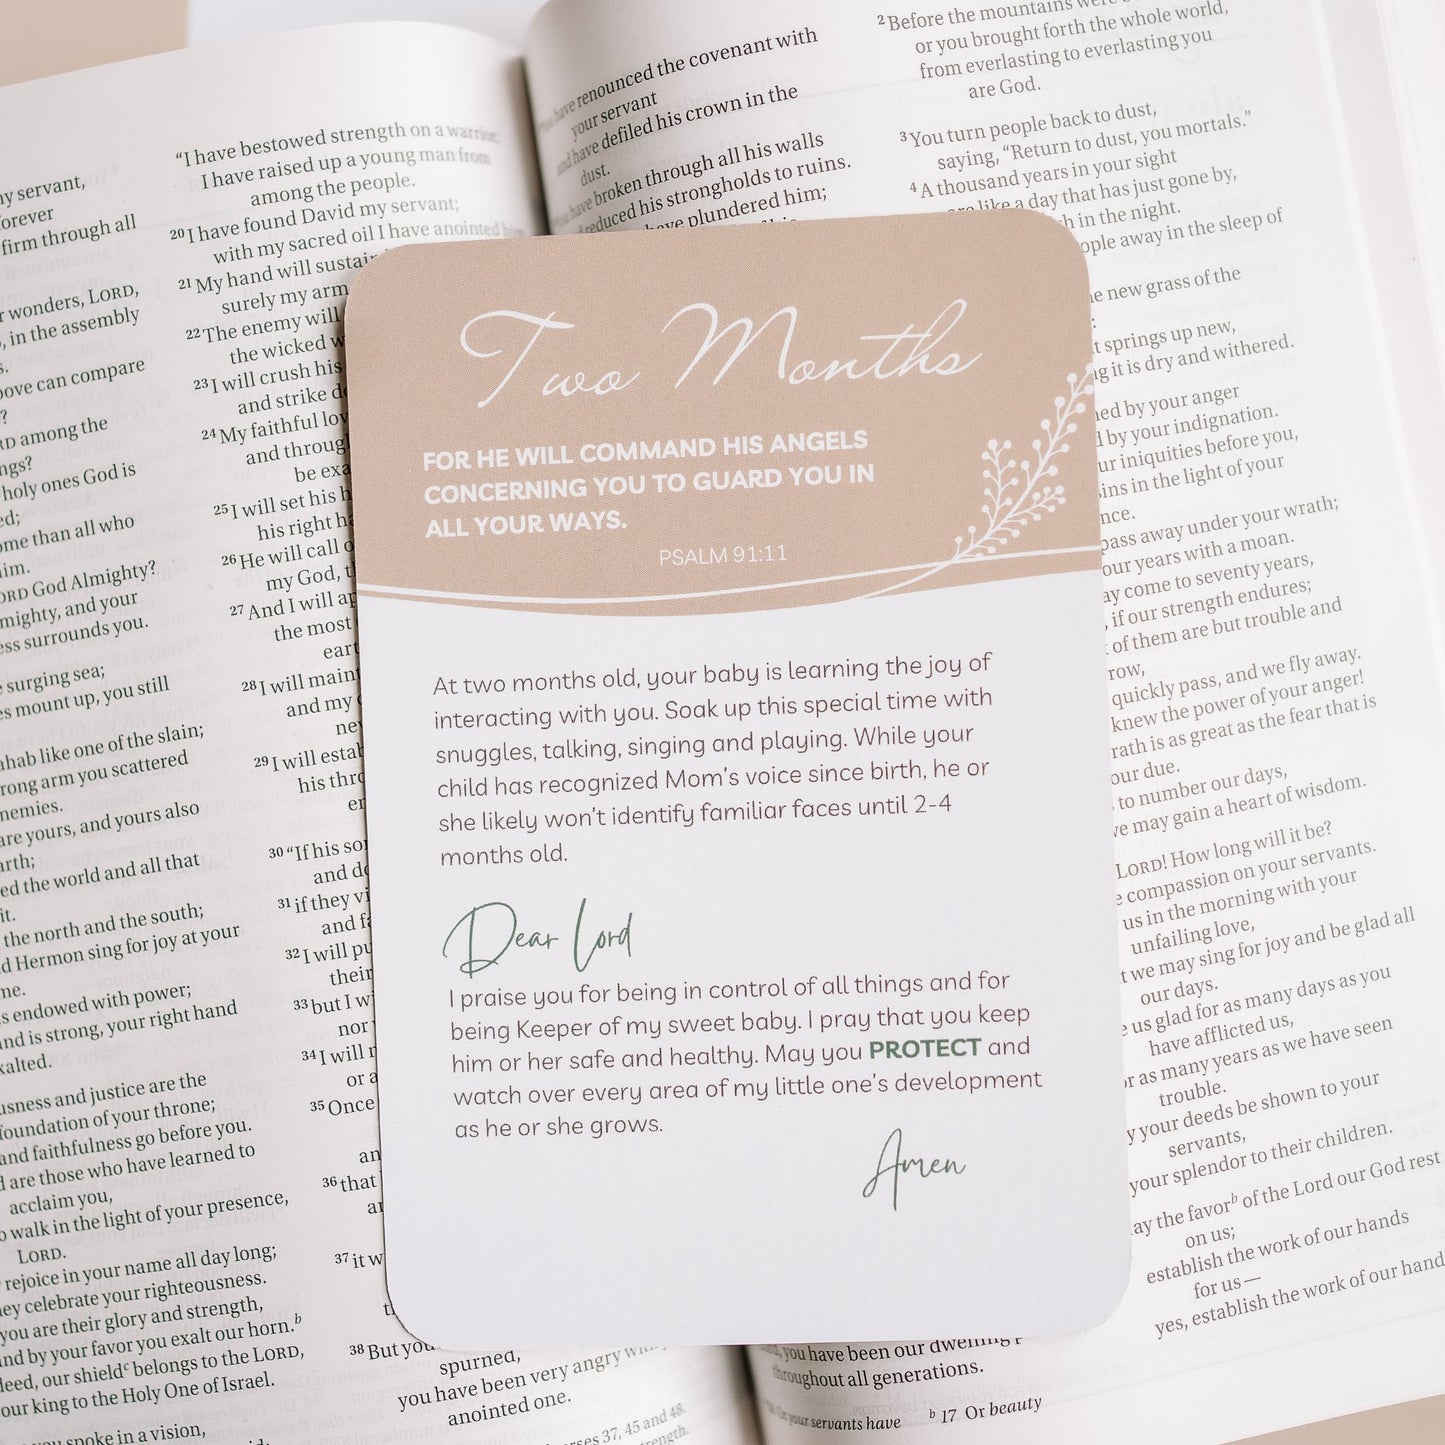 Two Months
FOR HE WILL COMMAND HIS ANGELS
CONCERNING YOU TO GUARD YOU IN
ALL YOUR WAYS.
PSALM 91:11
At two months old, your baby is learning the joy of
interacting with you. Soak up this special time with
snuggles, talking, singing and playing. While your
child has recognized Mom's voice since birth, he or
she likely won't identify familiar faces until 2-4
months old.
Dear Lord
I praise you for being in control of all things and for
being Keeper of my sweet baby. I pray that you keep
him or her safe and healthy. May you PROTECT and
watch over every area of my little one's development
as he or she grows.
Amen
my servant,
forever
firm through all
wonders, LORD,
, in the assembly
above can compare
?
LORD among the
holy ones God is
than all who
him.
LORD God Almighty?
mighty, and your
surrounds you.
surging sea;
mount up, you still
Rahab like one of the slain;
strong arm you scattered
enemies.
are yours, and yours also
earth;
the world and all that
it.
the north and the south;
Hermon sing for joy at your
endowed with power;
hand is strong, your right hand
exalted.
and justice are the
foundation of your throne;
and faithfulness go before you.
are those who have learned to
acclaim you,
walk in the light of your presence,
LORD.
rejoice in your name all day long;
they celebrate your righteousness.
you are their glory and strength,
and by your favor you exalt our horn.b
our shieldc belongs to the LORD,
our king to the Holy One of Israel.
you spoke in a vision,
"I have bestowed strength on a warrior;
I have raised up a young man from
among the people.
20 I have found David my servant;
with my sacred oil I have anointed
21 My hand will
surely my arm
22 The enemy will
the wicked
23 I will crush his
and strike
24 My faithful
and through
be
25 I will set his
his right
26 He will call
my God,
27 And I will
the most
28 I will
and my
29 I will
his
30 "If his
and
31 if they
and
32 I will
their
33 but I
nor
34 I will
or
35 Once
36 that
37 it
38 But you
spurned,
you have been very angry with
anointed one.
37, 45 and 48.
have renounced the covenant with
your servant
and have defiled his crown in the
dust.
have broken through all his walls
reduced his strongholds to ruins.
have plundered him;
you have been our dwelling
throughout all generations.
your servants have b 17 Or beauty
2 Before the mountains were
or you brought forth the whole world,
from everlasting to everlasting you
are God.
3 You turn people back to dust,
saying, "Return to dust, you mortals."
4 A thousand years in your sight
are like a day that has just gone by,
in the night.
people away in the sleep of
new grass of the
springs up new,
it is dry and withered.
by your anger
by your indignation.
our iniquities before you,
sins in the light of your
pass away under your wrath;
our years with a moan.
come to seventy years,
if our strength endures;
of them are but trouble and
quickly pass, and we fly away.
knew the power of your anger!
wrath is as great as the fear that is
your due.
to number our days,
we may gain a heart of wisdom.
LORD! How long will it be?
compassion on your servants.
us in the morning with your
unfailing love,
we may sing for joy and be glad all
our days.
us glad for as many days as you
have afflicted us,
for as many years as we have seen
trouble.
your deeds be shown to your
servants,
your splendor to their children.
the favorb of the Lord our God rest
on us;
establish the work of our hands
for us—
yes, establish the work of our